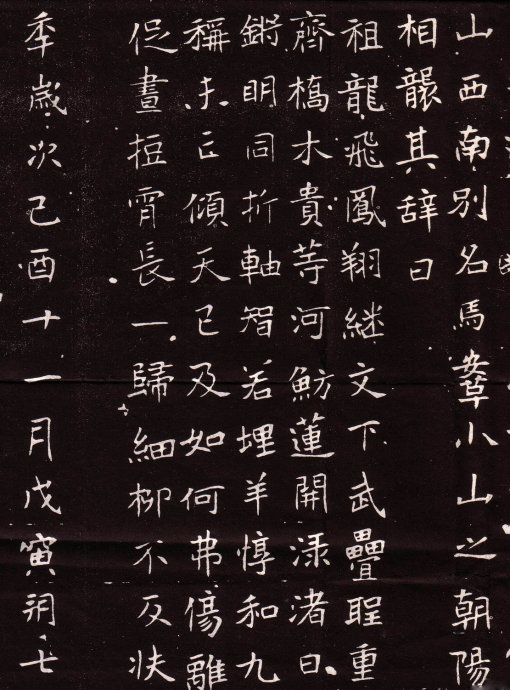 山西南別名馬鞍小山之朝陽
相襲其辭曰
祖龍飛鳳翔継文下武疊聖重
齊橋木貴等河魴蓮開淥渚日
鏘明同折軸智若埋羊惇和九
稱未亡傾天已及如何弗傷離
促晝短宵長一歸細柳不反扶
秊歲次己酉十一月戊寅朔七